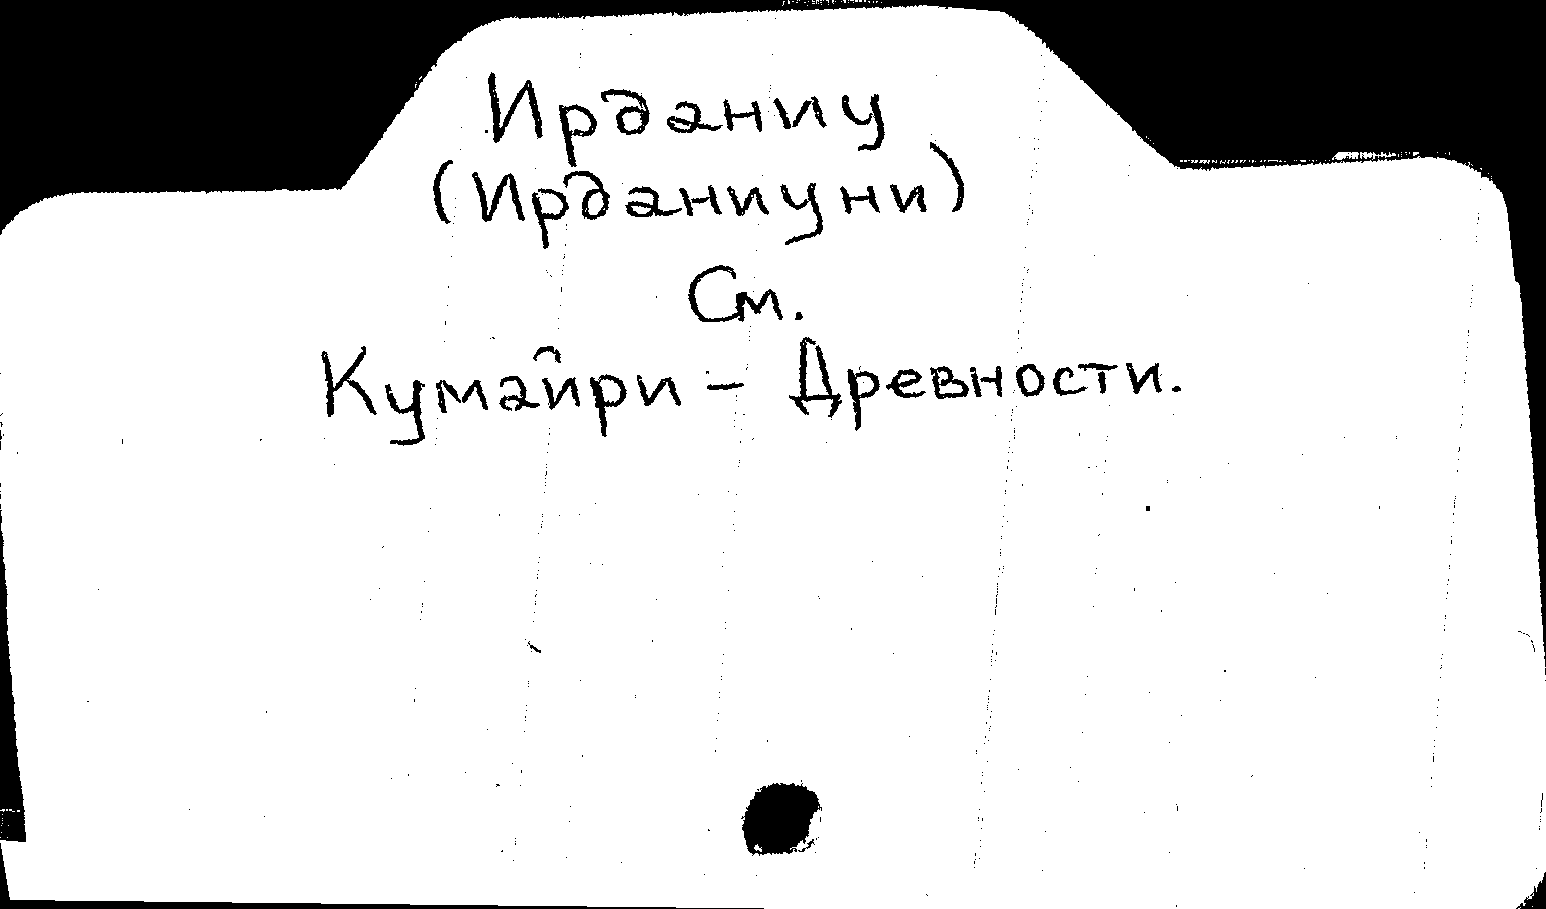 Ирданиу
(Ирданиуни)
См.
Кумайри – Древности.